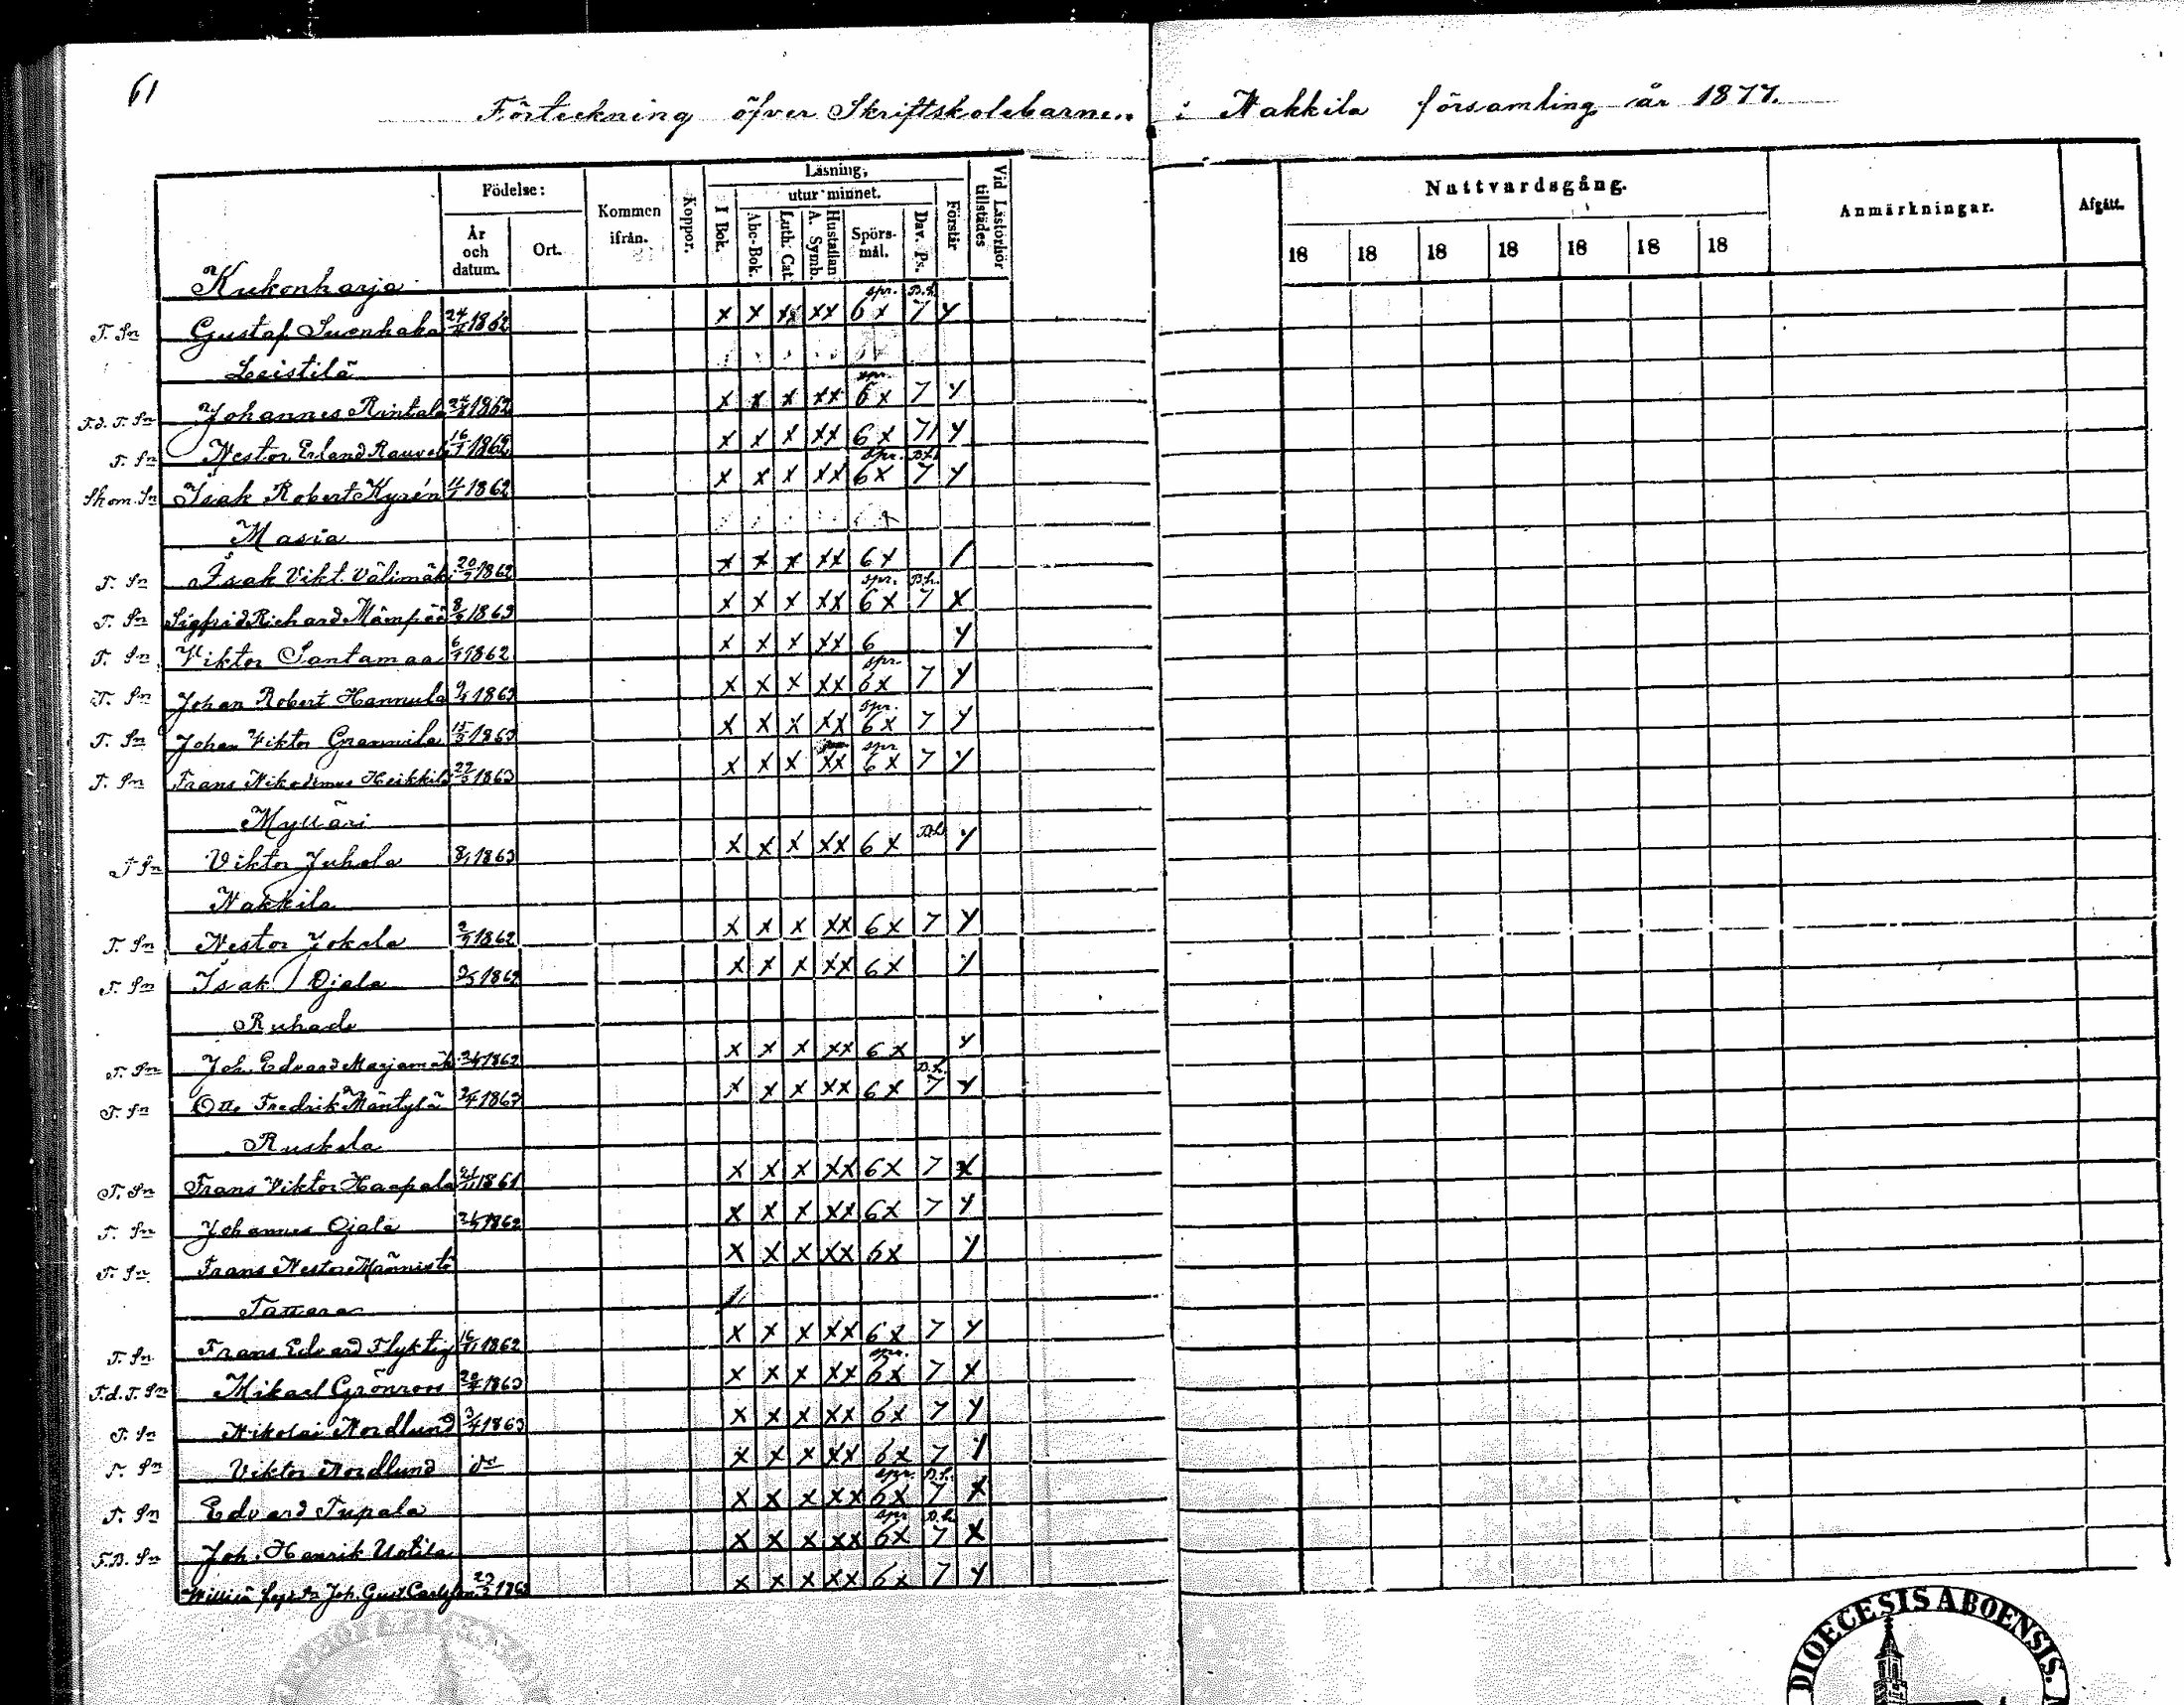 61
Förteckning öfver Skriftskolebarnen i Nakkila församling år 1877.
Födelse:
År och datum.
Ort.
Kommen ifrån.
Koppor.
Läsning,
utur minnet.
I Bok.
Abc-Bok.
Luth. Cat.
Hustaflan A. Symb.
Spörs-mål.
Dav. Ps.
Förstår
Vid Läsförhör tillstädes
Nattvardsgång.
18 18 18 18 18 18 18
Anmärkningar.
Afgått.
Kukonharja
T. Sn Gustaf Suenhaka 1862 x x xx xx spr. 6 x B.f. 7 y
Leistilä
T.d. T. Sn Johannes Rintala 1862 x x x xx spr. 6 x 7 y
T. Sn Nestor Erland 1862 x x x xx 6 x 71 y
Isak Robert Kyrén 1862 x x x xx spr. 6 x 7 y
Masia
T. Sn Isak Vikt. Välimäki 20/7 1862 x x x xx 6 x /
T. Sn Sigfrid Richard 1863 x x x xx spr. 6 x 7 x
T. Sn Viktor Santamaa 1862 x x x xx 6 y
T. Sn Johan Robert Hannula 1863 x x x xx spr. 6 x 7 y
T. Sn Johan Viktor Grannila 1863 x x x xx spr. 6 x 7 y
T. Sn Frans Nikodemus Heikkilä 1863 x x x xx spr 6 x 7 y
Mylläri
T Sn Viktor Juhola 8/1 1863 x x x xx 6 x y
Nakkila
T. Sn Nestor Jokela 1862 x x x xx 6 x 7 y
T. Sn Isak Ojala 1862 x x x xx 6 x y
Ruhade
T. Sn Joh. Edvard Marjamäki 1862 x x x xx 6 x y
T. Sn Otto Fredrik Mäntylä x x x xx 6 x 7 y
Ruskela
T. Sn Frans Viktor Haapala 1861 x x x xx 6 x 7 x
T. Sn Johannes Ojala 1862 x x x xx 6 x 7 y
T. Sn Frans Nestor Männistö x x x xx 6 x y
Tattara
T. Sn Frans Edvard Flyktig 1862 x x x xx 6 x 7 y
T.d. T. Sn Mikael Grönroos 20/4 1863 x x x xx spr. 6 x 7 x
T. Sn Nikolai Nordlund 3/4 1863 x x x xx 6 x 7 y
T. Sn Viktor Nordlund do x x x xx 6 x 7 y
T. Sn Edvard Tupala x x x xx spr. 6 x 7 x
T.B. Sn Joh. Henrik Uotila x x x xx spr 6 x 7 x
Joh. Gust Carlsson x x x xx 6 x 7 y
DIOECESIS ABOENSIS.